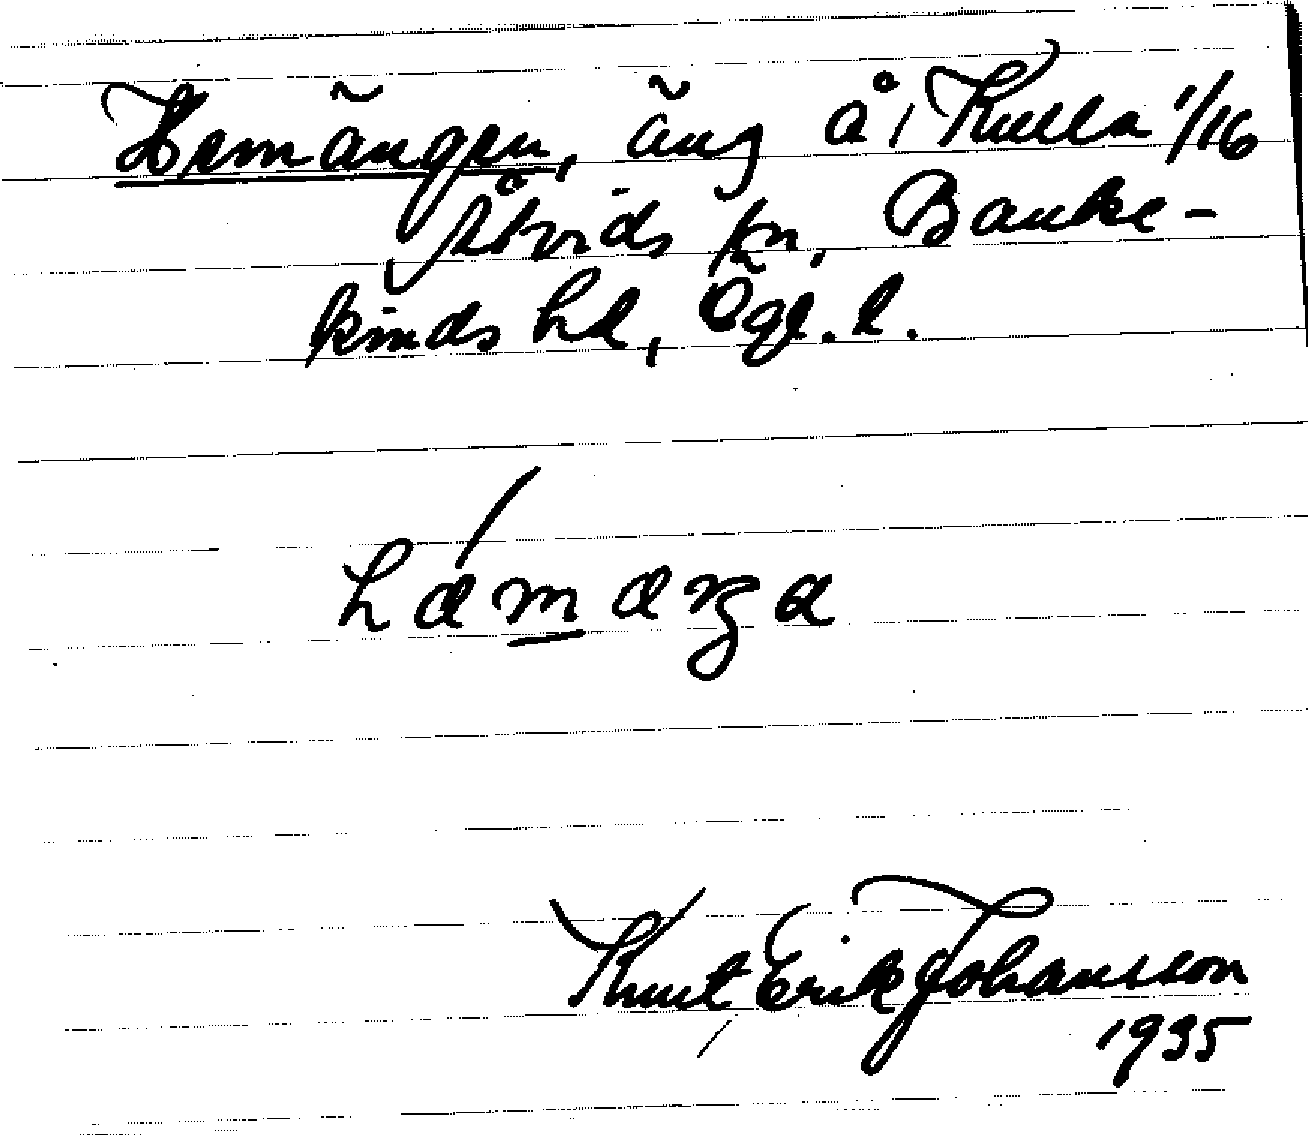 Hemängen, äng å, Kulla 1/16
Åtvids sn, Banke-
kinds hd, Ögl. l.
Knut Erik Johansson
1935